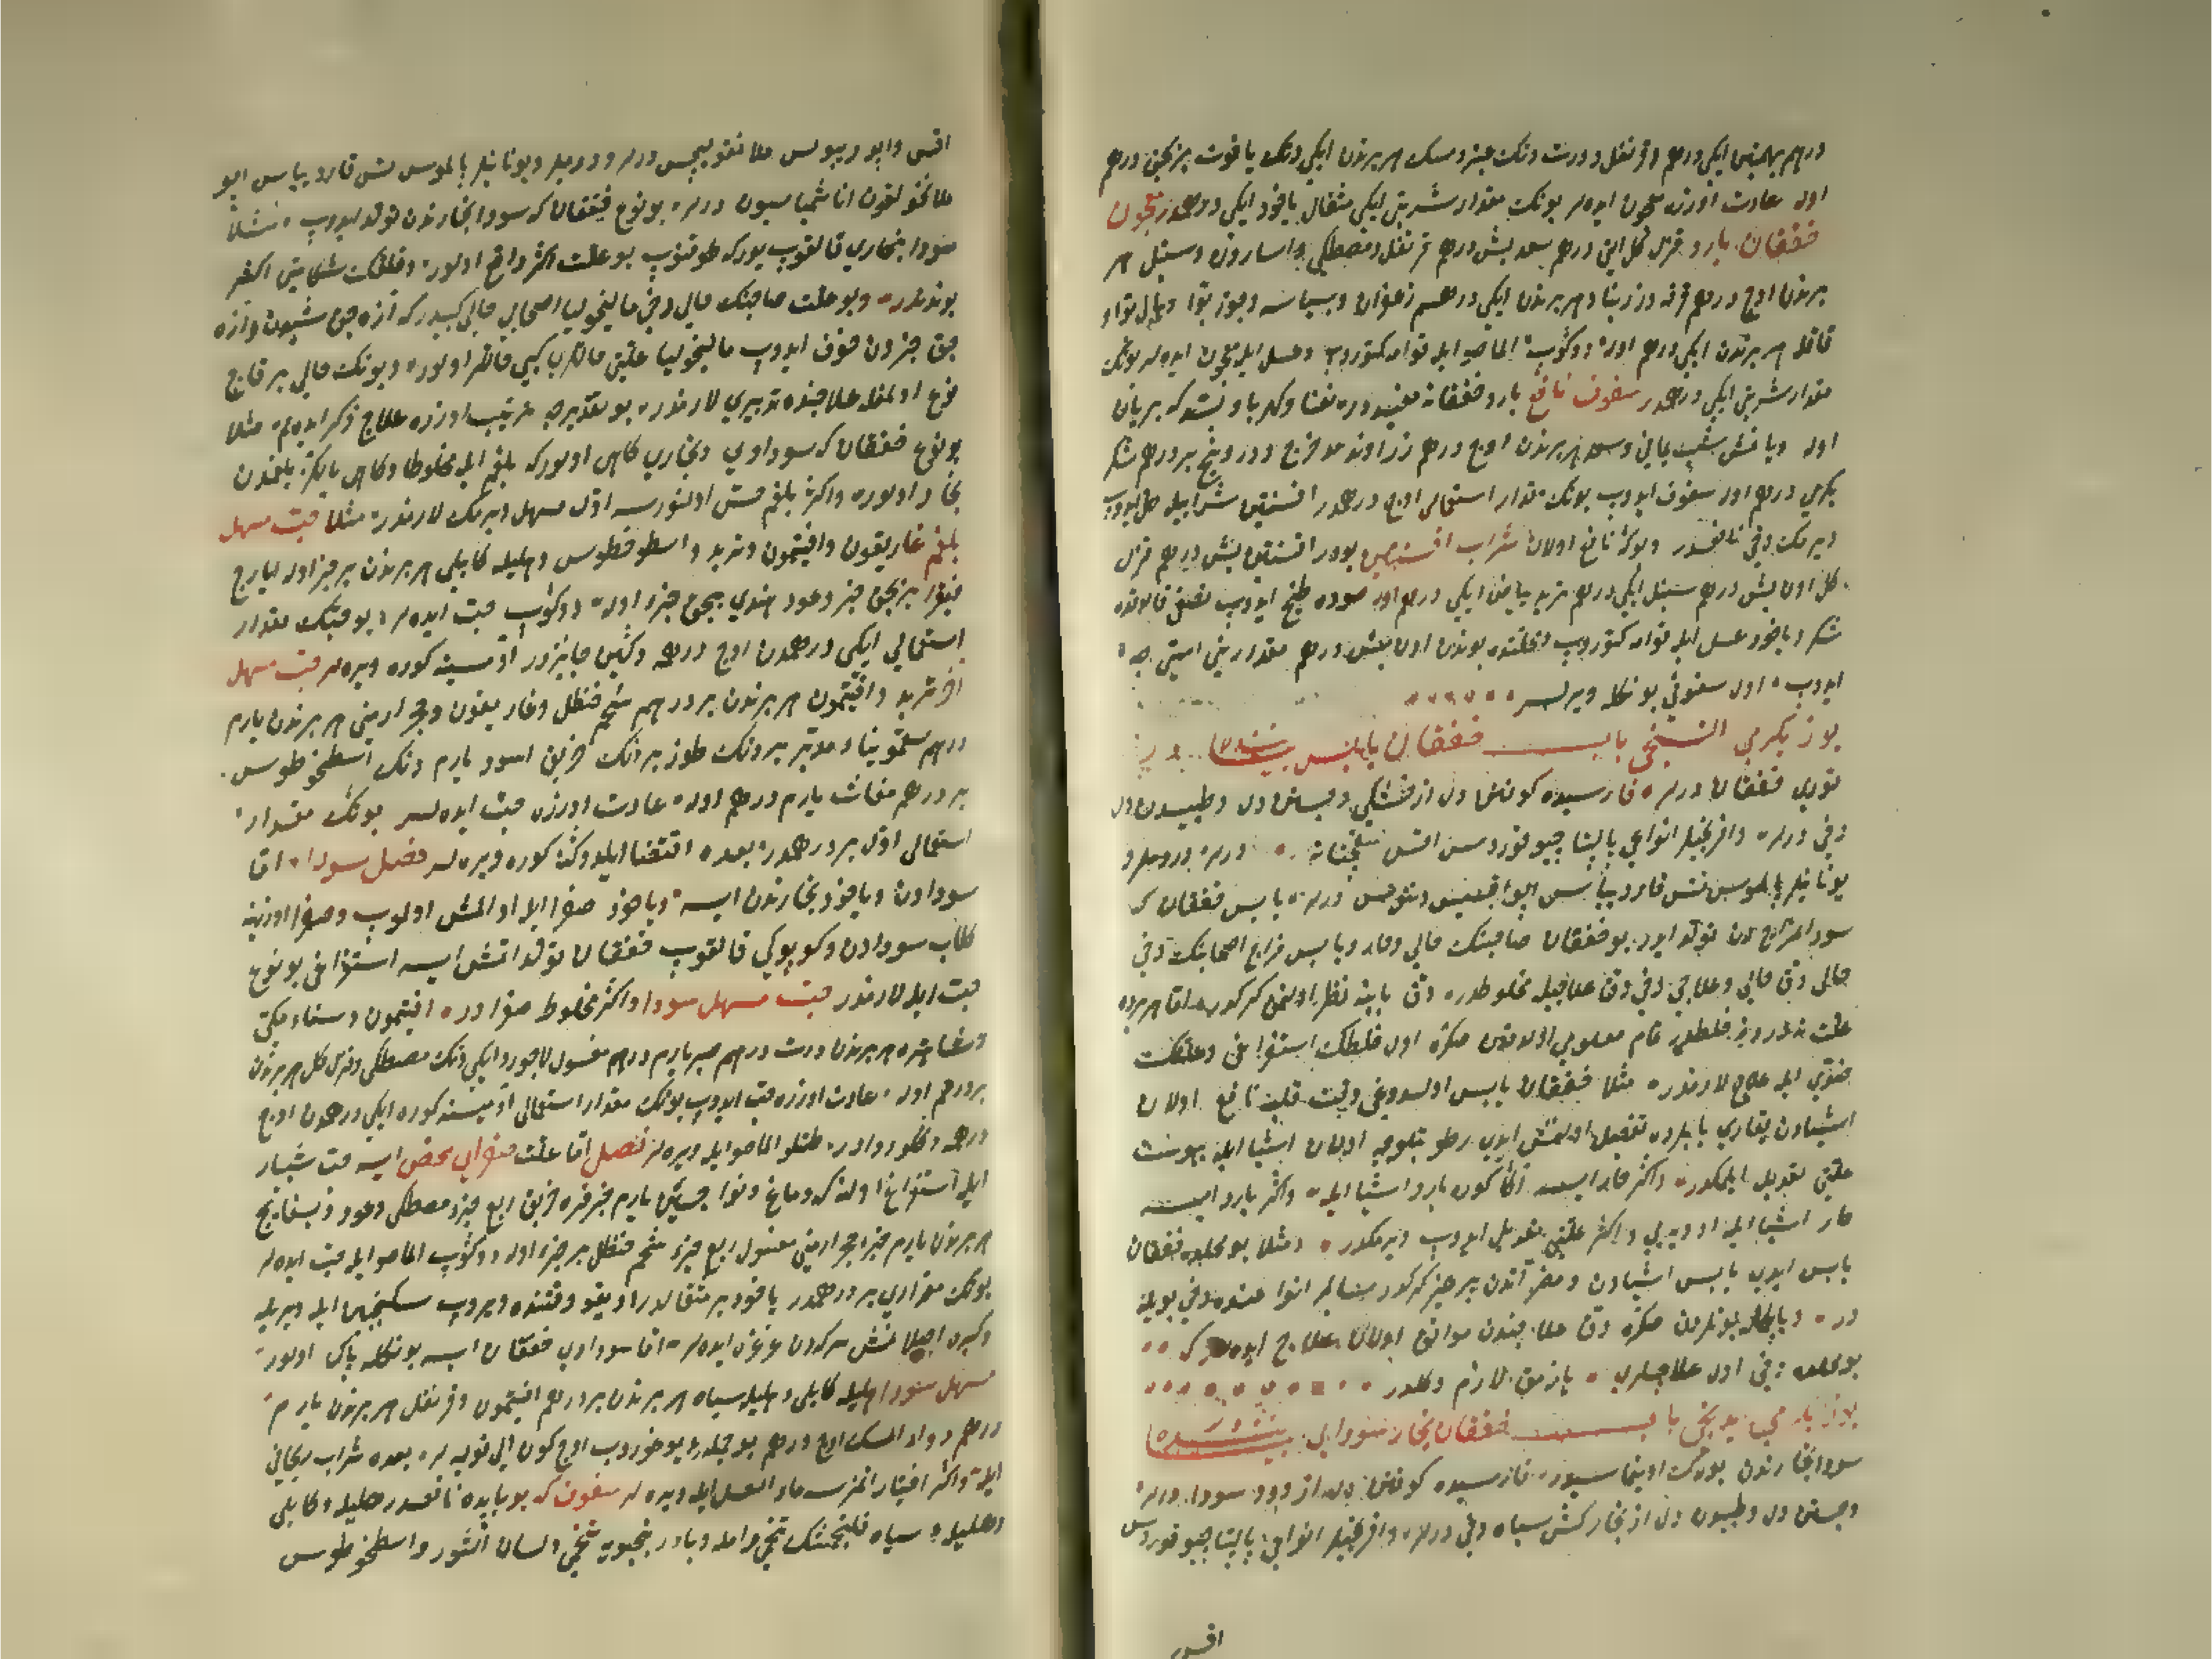 درهم بهمنین ایکی درهم و قرنفل و درت دنک عنبر و مسک هر برندن ایکی دنک یاقوت بر بچق درهم
اوله عادت اوزره معجون ایده لر بونک مقدار شربتی ایکی مثقال یاخود ایکی درهمدر معجون
خفقان بارد قزل کل اون درهم سعد بش درهم قرنفل و مصطکی و اسارون و سنبل هر
برندن اوچ درهم قرفه و زرنباد هر برندن ایکی درهم زعفران و بسباسه و جوز بوا و هال بوا و
قاقله هر برندن ایکی درهم اوله دوکوب الما صویله قوامه کتوروب و عسل ایله معجون ایده لر بونک
مقدار شربتی ایکی درهمدر سفوف نافع بارد خفقانه مفیددر نعنا و کهربا و بسد که بریان
اوله و یانمش شب یمانی و سعد هر برندن اوچ درهم زراوند مدحرج و درونج بر درهم شکر
یکرمی درهم اوله سفوف ایدوب بونک مقدار استعمالی اوچ درهمدر افسنتین شرابیله حل ایدوب
ویرمک دخی نافعدر و بوکا نافع اولان شراب افسنتین بودر افسنتین بش درهم قزل
کل اون بش درهم سنبل ایکی درهم تربد بیاض ایکی درهم اوله صوده طبخ ایدوب نصفی قالنده
شکر و یاخود عسل ایله قوامه کتوروب وقتنده بوندن اون بش درهم مقدارینی ایستی جه
ایدوب اول سفوفی بونکله ویرلر
یوز یکرمی التنجی باب خفقان یابس بیاننده در
قوری خفقان درلر فارسیده کوفتن دل از خشکی و جستن دل و طبیدن دل
دخی درلر و افرنجیلر انواعی پالپتاجیو قوردیس درلر و رومیلر و
یونانیلر پالموس تس قاردیاس درلر یابس خفقان که
سوء المزاجدن تولد ایدر بو خفقان صاحبنک حالی و حار و یابس مزاج اصحابنک دخی
حالی دق حالی و علاجی دخی دق علاجیله مخلوطدر دق بابنه نظر اولنمق کرکدر اما هر برده
علت نه در و نه خلطدر تمام معلومی اولدوقدن صکره اول خلطک استفراغی و علتک
ضدی ایله علاج لازمدر مثلا خفقان یابس اولدوغی وقت قلبه نافع اولان
اشیادن یقاری بابلرده تفصیل اولنمش ایدی رطوبتلوجه اولان اشیا ایله یبوست
علتی تعدیل ایلمکدر و اکثر حار ایسه اکا کوره بارد اشیا ایله و اکثر بارد ایسه
حار اشیا ایله ادویه یی و اکثر علتی تعدیل ایدوب ویرمکدر مثلا بو محلده خفقان
یابس ایدی یابس اشیادن و مضر آندن پرهیز کرکدر سائر انواعنده دخی بویله
در و بالجمله بونلردن صکره دق علاجندن موافق اولان علاج ایده لر که
بو محلده دخی اول علاجلری یازمق لازم دکلدر
یوز یکرمی یدنجی باب خفقان بخار سودایی بیاننده در
سودا بخارندن یورک اوینماسیدر فارسیده کوفتن دل از دود سودا درلر
و جستن دل و طبیدن دل از بخار کش سیاه دخی درلر و افرنجیلر انواعی پالپتاجیو قوردیس
افس
ملانقولیقوس درلر و رومیلر و یونانیلر پالموس تس قاردیاس
ملانخولقون اناثمیاسیون درلر بو نوع خفقان که سودا بخارندن تولد ایدوب مثلا
سودا بخاری قالقوب یورکه طوقنوب بو علت اکثر واقع اولور و خلقک شکایتی اکثر
بوندندر و بو علت صاحبنک حالی دخی مالیخولیا اصحابی حالی کبیدر که از جق شیدن و از
جق چیزدن خوف ایدوب مالیخولیا علتی حالتی کبی حاللر اولور و بونک حالی بر قاچ
نوع اولمغله علاجنده تدبیری لازمدر بو تقدیرجه ترتیب اوزره علاج ذکر ایده لم مثلا
بو نوع خفقان که سوداوی و بخاری کاهی اولور که بلغم ایله مخلوط و کاهی یالکز بلغمدن
بخار اولور و اکثر بلغم حس اولنورسه اول مسهل ویرمک لازمدر مثلا حب مسهل
بلغم غاریقون و افتیمون و تربد و اسطوخودوس و هلیله کابلی هر برندن بر جزء اوله ایارج
فیقرا بر بچق جزء و عود هندی بچق جزء اوله دوکوب حب ایده لر و بو حبک مقدار
استعمالی ایکی درهمدن اوچ درهمه دکین جایزدر آدمیسنه کوره ویره لر حب مسهل
آخر تربد و افتیمون هر برندن بر درهم شحم حنظل و غاریقون و حجر ارمنی هر برندن یارم
درهم سقمونیا و بر دنک طوز بر دنک خربق اسود یارم دنک اسطوخودوس
بر درهم یارم درهم اوله عادت اوزره حب ایده لر بونک مقدار
استعمالی اول بر درهمدر بعده اقتضا ایلدوکنه کوره ویره لر فصل سودا اما
سودادن و یاخود بخارندن ایسه و یاخود صفرا ایله اولمش اولوب و صفرا اوزرینه
غالب سودادن و کوپوکی قالقوب خفقان تولد اتمش ایسه استفراغی بو نوع
حب ایله لازمدر حب مسهل سودا و اکثر مخلوط صفرادر افتیمون و سناء مکی
و شاهتره هر برندن درت درهم صبر یارم درهم مغسول لاجورد ایکی دنک مصطکی و قزل کل هر برندن
بر درهم اوله عادت اوزره حب ایدوب بونک مقدار استعمالی آدمیسنه کوره ایکی درهمدن اوچ
درهمه دکلو واردر طتلو الما صویله ویره لر فصل اما علت صفرایی محض ایسه حب شبیار
ایله استفراغ اولنه که دماغ و نواحیسیچون یارم جزء قره خربق ربع جزء مصطکی و عود و بسفایج
هر برندن یارم جزء حجر ارمنی مغسول ربع جزء شحم حنظل بر جزء اوله دوکوب الما صویله حب ایده لر
بونک مقداری بر درهمدر یاخود بر مثقالدر اویقو وقتنده ویروب سکنجبین ایله ویریله
و کبره اصلانمش سرکه دن غرغره ایده لر اما سوداوی خفقان ایسه بونکله پاک اولور
مسهل سودا هلیله کابلی و هلیله سیاه هر برندن بر درهم افتیمون و قرنفل هر برندن یارم
درهم دواء المسک اوچ درهم بو جمله یی یوغوروب اوچ کون ایچی قویه لر بعده شراب ریحانی
ایله و اکثر اختیار اتمزسه ماء العسل ایله ویره لر سفوف که بو بابده نافعدر هلیله و کابلی
و هلیله سیاه فلنجمشک تخمی و امله و بادرنجبویه تخمی و لسان الثور و اسطوخودوس